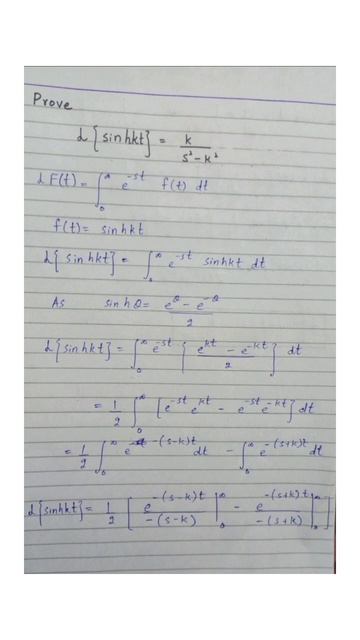 Prove
L{sinhkt} = k / s² - k²
L F(t) = ∫₀^∞ e^-st f(t) dt
f(t) = sinhkt
L{sinhkt} = ∫₀^∞ e^-st sinhkt dt
As sinhθ = e^θ - e^-θ / 2
L{sinhkt} = ∫₀^∞ e^-st {e^kt - e^-kt / 2} dt
= 1/2 ∫₀^∞ [e^-st e^kt - e^-st e^-kt] dt
= 1/2 ∫₀^∞ e^-(s-k)t dt - ∫₀^∞ e^-(s+k)t dt
L{sinhkt} = 1/2 [e^-(s-k)t / -(s-k) |₀^∞ - e^-(s+k)t / -(s+k) |₀^∞]